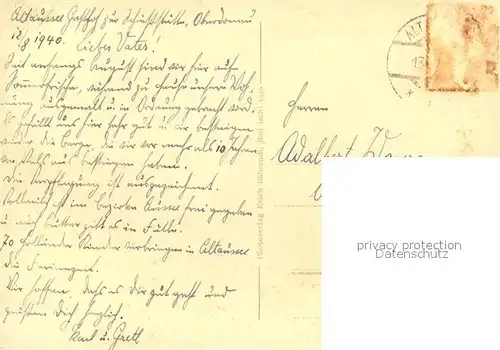 Altaussee Gasthof zur Schießstätte, Oberdonau
12/8 1940. Lieber Vater!
Seit anfangs August sind wir hier auf
Sommerfrische, während zu Hause unsere Woh-
nung ausgemalt u. in Ordnung gebracht wird.
Es gefällt uns hier sehr gut u. wir besteigen
wieder die Berge, die wir vor mehr als 10 Jahren
bestiegen haben.
Die Verpflegung ist ausgezeichnet.
ist im Bezirke Aussee frei gegeben
u. auch Butter gibt es in Fülle.
70 Holländer Kinder verbringen in Altaussee
die Ferienzeit.
Wir hoffen, dass es Dir gut geht und
grüßen Dich herzlich.
Karl u. Gretl
Photoverlag Erich Bad Ischl
ALT
13
Herrn
Adalbert
privacy protection
Datenschutz